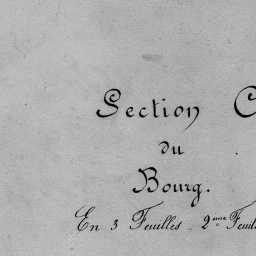 Section C
du
Bourg.
En 3 Feuilles. 2eme Feuil